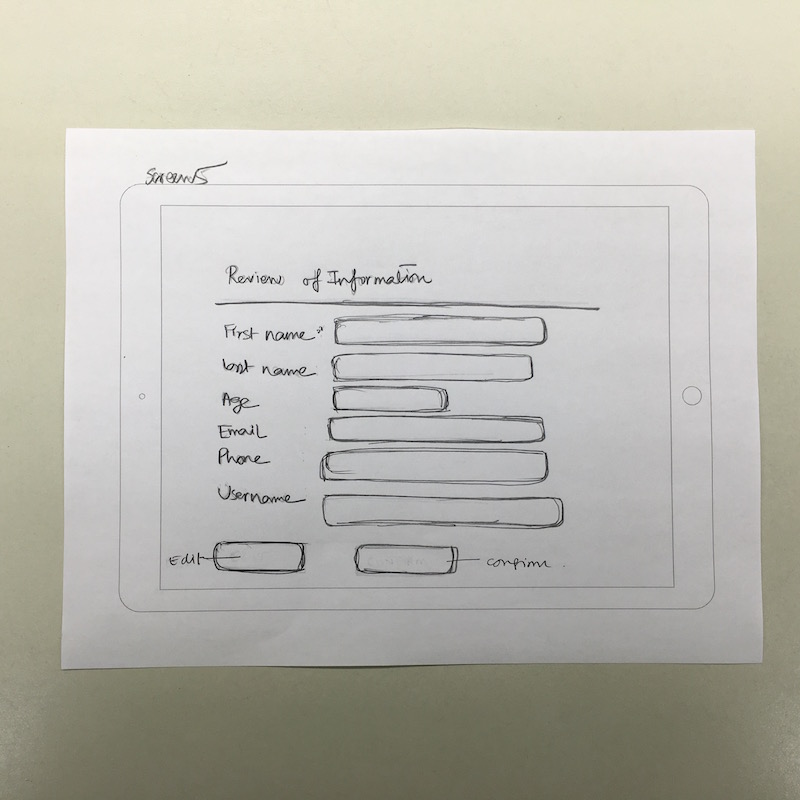 Screen 5
Review of Information
First name
Last name
Age
Email
Phone
Username
Edit
Confirm